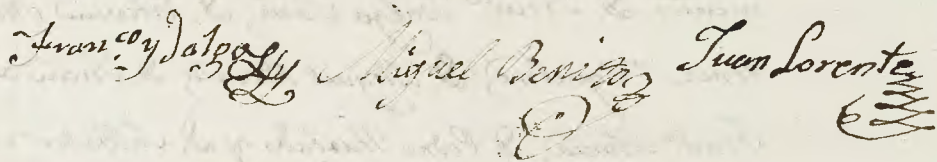 Franco ydalgo Miguel Benito Juan Lorente